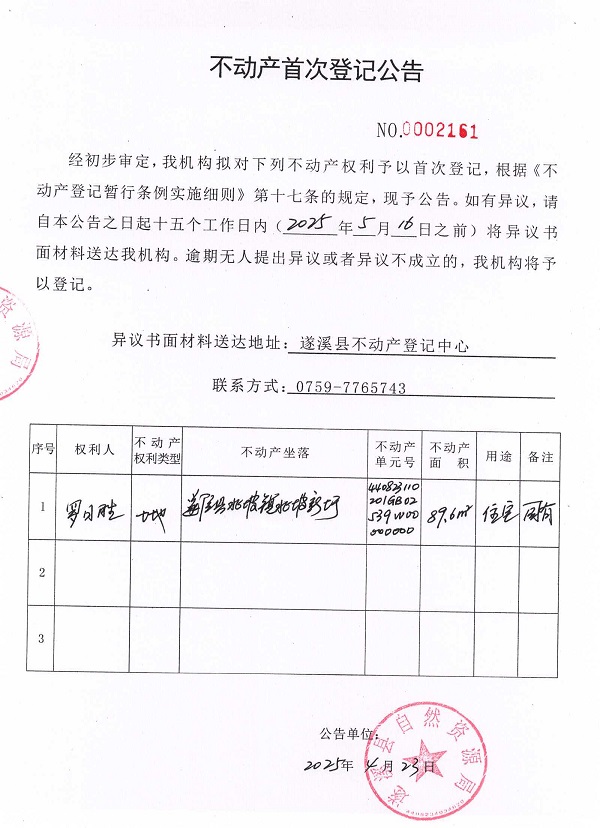 不动产首次登记公告
NO.0002161
经初步审定，我机构拟对下列不动产权利予以首次登记，根据《不
动产登记暂行条例实施细则》第十七条的规定，现予公告。如有异议，请
自本公告之日起十五个工作日内（2025年5月16日之前）将异议书
面材料送达我机构。逾期无人提出异议或者异议不成立的，我机构将予
以登记。
资源局
异议书面材料送达地址：遂溪县不动产登记中心
联系方式：0759-7765743
序号 权利人 不动产权利类型 不动产坐落 不动产单元号 不动产面积 用途 备注
1 罗日胜 土地 遂溪县北坡镇北坡新圩 440823110201GB02539W00000000 89.6m² 住宅 国有
2
3
公告单位：
2025年4月23日
遂溪县自然资源局